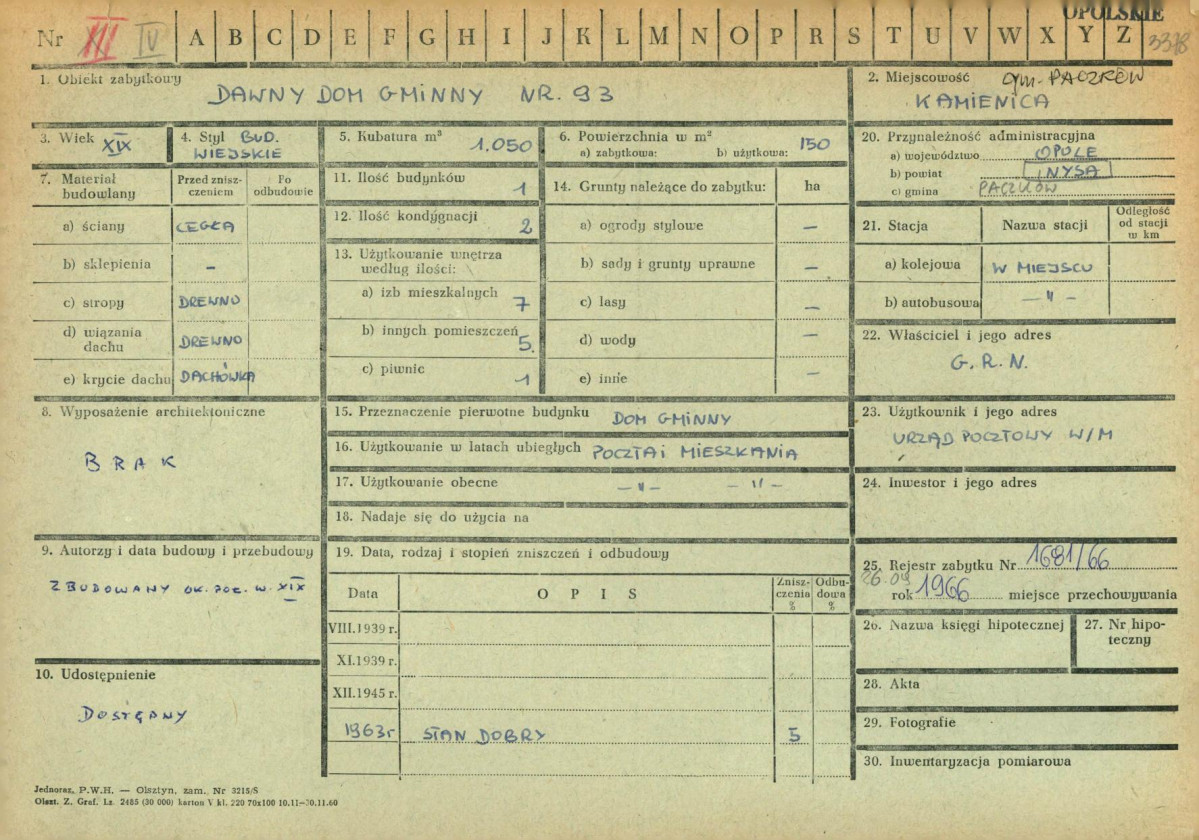 OPOLSKIE
Nr III IV A B C D E F G H I J K L M N O P R S T U V W X Y Z 3378
1. Obiekt zabytkowy
DAWNY DOM GMINNY NR. 93
2. Miejscowość gm. PACZKÓW
KAMIENICA
3. Wiek XIX
4. Styl BUD.
WIEJSKIE
5. Kubatura m³ 1.050
6. Powierzchnia w m²
a) zabytkowa: b) użytkowa: 150
20. Przynależność administracyjna
a) województwo OPOLE
b) powiat NYSA
c) gmina PACZKÓW
7. Materiał budowlany
Przed zniszczeniem
Po odbudowie
a) ściany CEGŁA
b) sklepienia –
c) stropy DREWNO
d) wiązania dachu DREWNO
e) krycie dachu DACHÓWKA
11. Ilość budynków 1
12. Ilość kondygnacji 2
13. Użytkowanie wnętrza
według ilości:
a) izb mieszkalnych 7
b) innych pomieszczeń 5
c) piwnic 1
14. Grunty należące do zabytku: ha
a) ogrody stylowe –
b) sady i grunty uprawne –
c) lasy –
d) wody –
e) inne –
21. Stacja Nazwa stacji Odległość od stacji w km
a) kolejowa W MIEJSCU
b) autobusowa – " –
22. Właściciel i jego adres
G. R. N.
8. Wyposażenie architektoniczne
BRAK
15. Przeznaczenie pierwotne budynku DOM GMINNY
16. Użytkowanie w latach ubiegłych POCZTA i MIESZKANIA
17. Użytkowanie obecne – " – – " –
18. Nadaje się do użycia na
23. Użytkownik i jego adres
URZĄD POCZTOWY W/M
24. Inwestor i jego adres
9. Autorzy i data budowy i przebudowy
ZBUDOWANY OK. POŁ. W. XIX
10. Udostępnienie
DOSTĘPNY
19. Data, rodzaj i stopień zniszczeń i odbudowy
Data OPIS Zniszczenia % Odbudowa %
VIII.1939 r.
XI.1939 r.
XII.1945 r.
1963 r STAN DOBRY 5
25. Rejestr zabytku Nr 1681/66
26.09
rok 1966 miejsce przechowywania
26. Nazwa księgi hipotecznej
27. Nr hipoteczny
28. Akta
29. Fotografie
30. Inwentaryzacja pomiarowa
Jednoraz. P.W.H. — Olsztyn, zam. Nr 3215/S
Olszt. Z. Graf. Lz. 2485 (30 000) karton V kl. 220 70x100 10.11—30.11.60